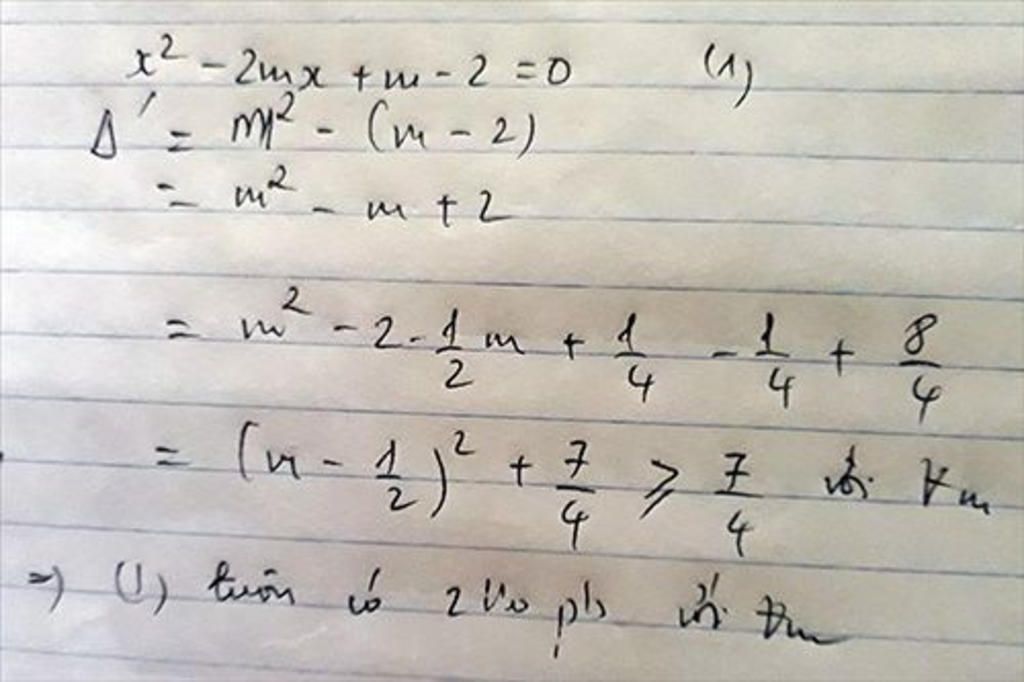 x² - 2mx + m - 2 = 0 (1)
Δ' = m² - (m - 2)
= m² - m + 2
= m² - 2 · 1/2 m + 1/4 - 1/4 + 8/4
= (m - 1/2)² + 7/4 ⩾ 7/4 với ∀m
=> (1) luôn có 2 với ∀m